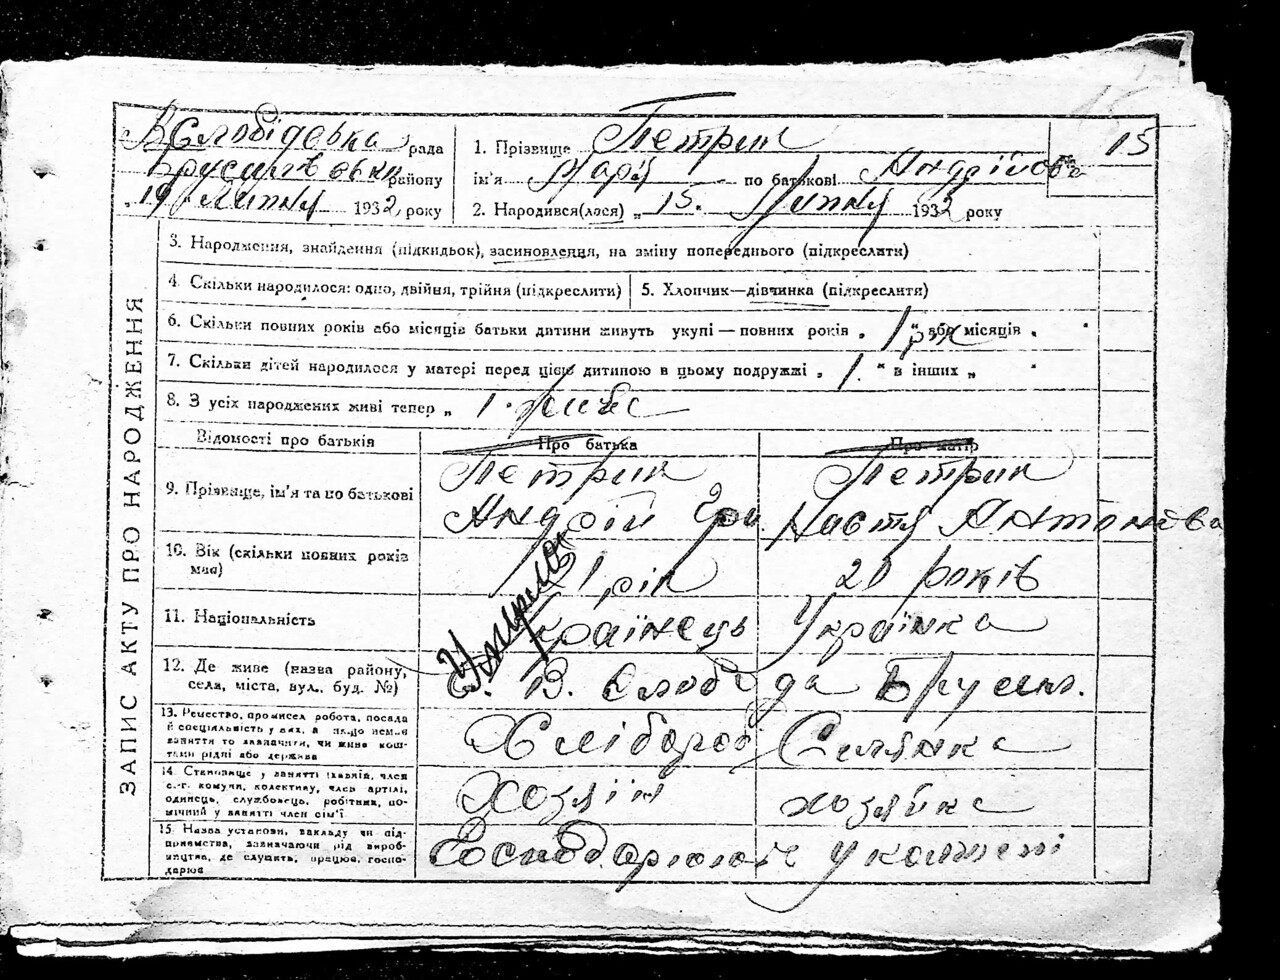 В Слобідська рада
Брусилівськи району
„19 Липня 1932, року
ЗАПИС АКТУ ПРО НАРОДЖЕННЯ
15
1. Прізвище Петрик
ім'я Марія по батькові Андрійовна
2. Народився(лася) „ 15. Липня 1932 року
3. Народження, знайдення (підкидьок), засиновлення, на зміну попереднього (підкреслити)
4. Скільки народилося: одно, двійня, трійня (підкреслити)
5. Хлопчик—дівчинка (підкреслити)
6. Скільки повних років або місяців батьки дитини живуть укупі — повних років „ 1 рік " або місяців „ "
7. Скільки дітей народилося у матері перед цією дитиною в цьому подружжі „ 1. " в інших „ "
8. З усіх народжених живі тепер „ 1.
Відомості про батьків
Про батька
Про матір
9. Прізвище, ім'я та по батькові
Петрик
Андрій Гри.
Петрик
Настя Антонова
10. Вік (скільки повних років має)
1 рік
20 років
11. Національність
Українець
Українка
Умерла
12. Де живе (назва району, села, міста, вул. буд. №)
с. В. Слобода Брусил.
13. Ремество, промисел робота, посада й спеціяльність у них, а якщо немає заняття то зазначити, чи живе коштами рідні або держави
Хлібороб
Селянка
14. Становище у занятті (хазяїн, член с.-г. комуни, колективу, член артілі, одинець, службовець, робітник, помічний у занятті член сім'ї
Хозяїн
хозяйка
15. Назва установи, закладу чи підприємства, зазначаючи рід виробництва, де служить, працює, господарює
Господарюють у